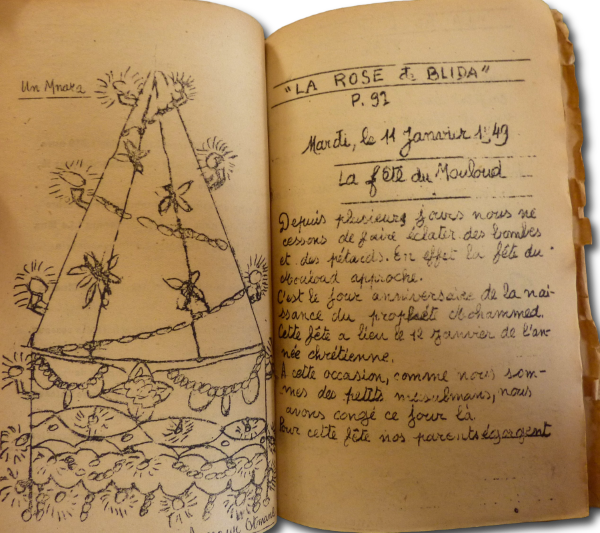 Un Mnara
"LA ROSE de BLIDA"
P. 92
Mardi, le 11 Janvier 1949
La fête du Mouloud
Depuis plusieurs jours nous ne
cessons de faire éclater des bombes
et des pétards. En effet la fête du
Mouloud approche.
C'est le jour anniversaire de la nai-
ssance du prophète Mohammed.
Cette fête a lieu le 12 Janvier de l'an-
née chrétienne.
A cette occasion, comme nous som-
mes des petits musulmans, nous
avons congé ce jour là
Pour cette fête nos parents égorgent